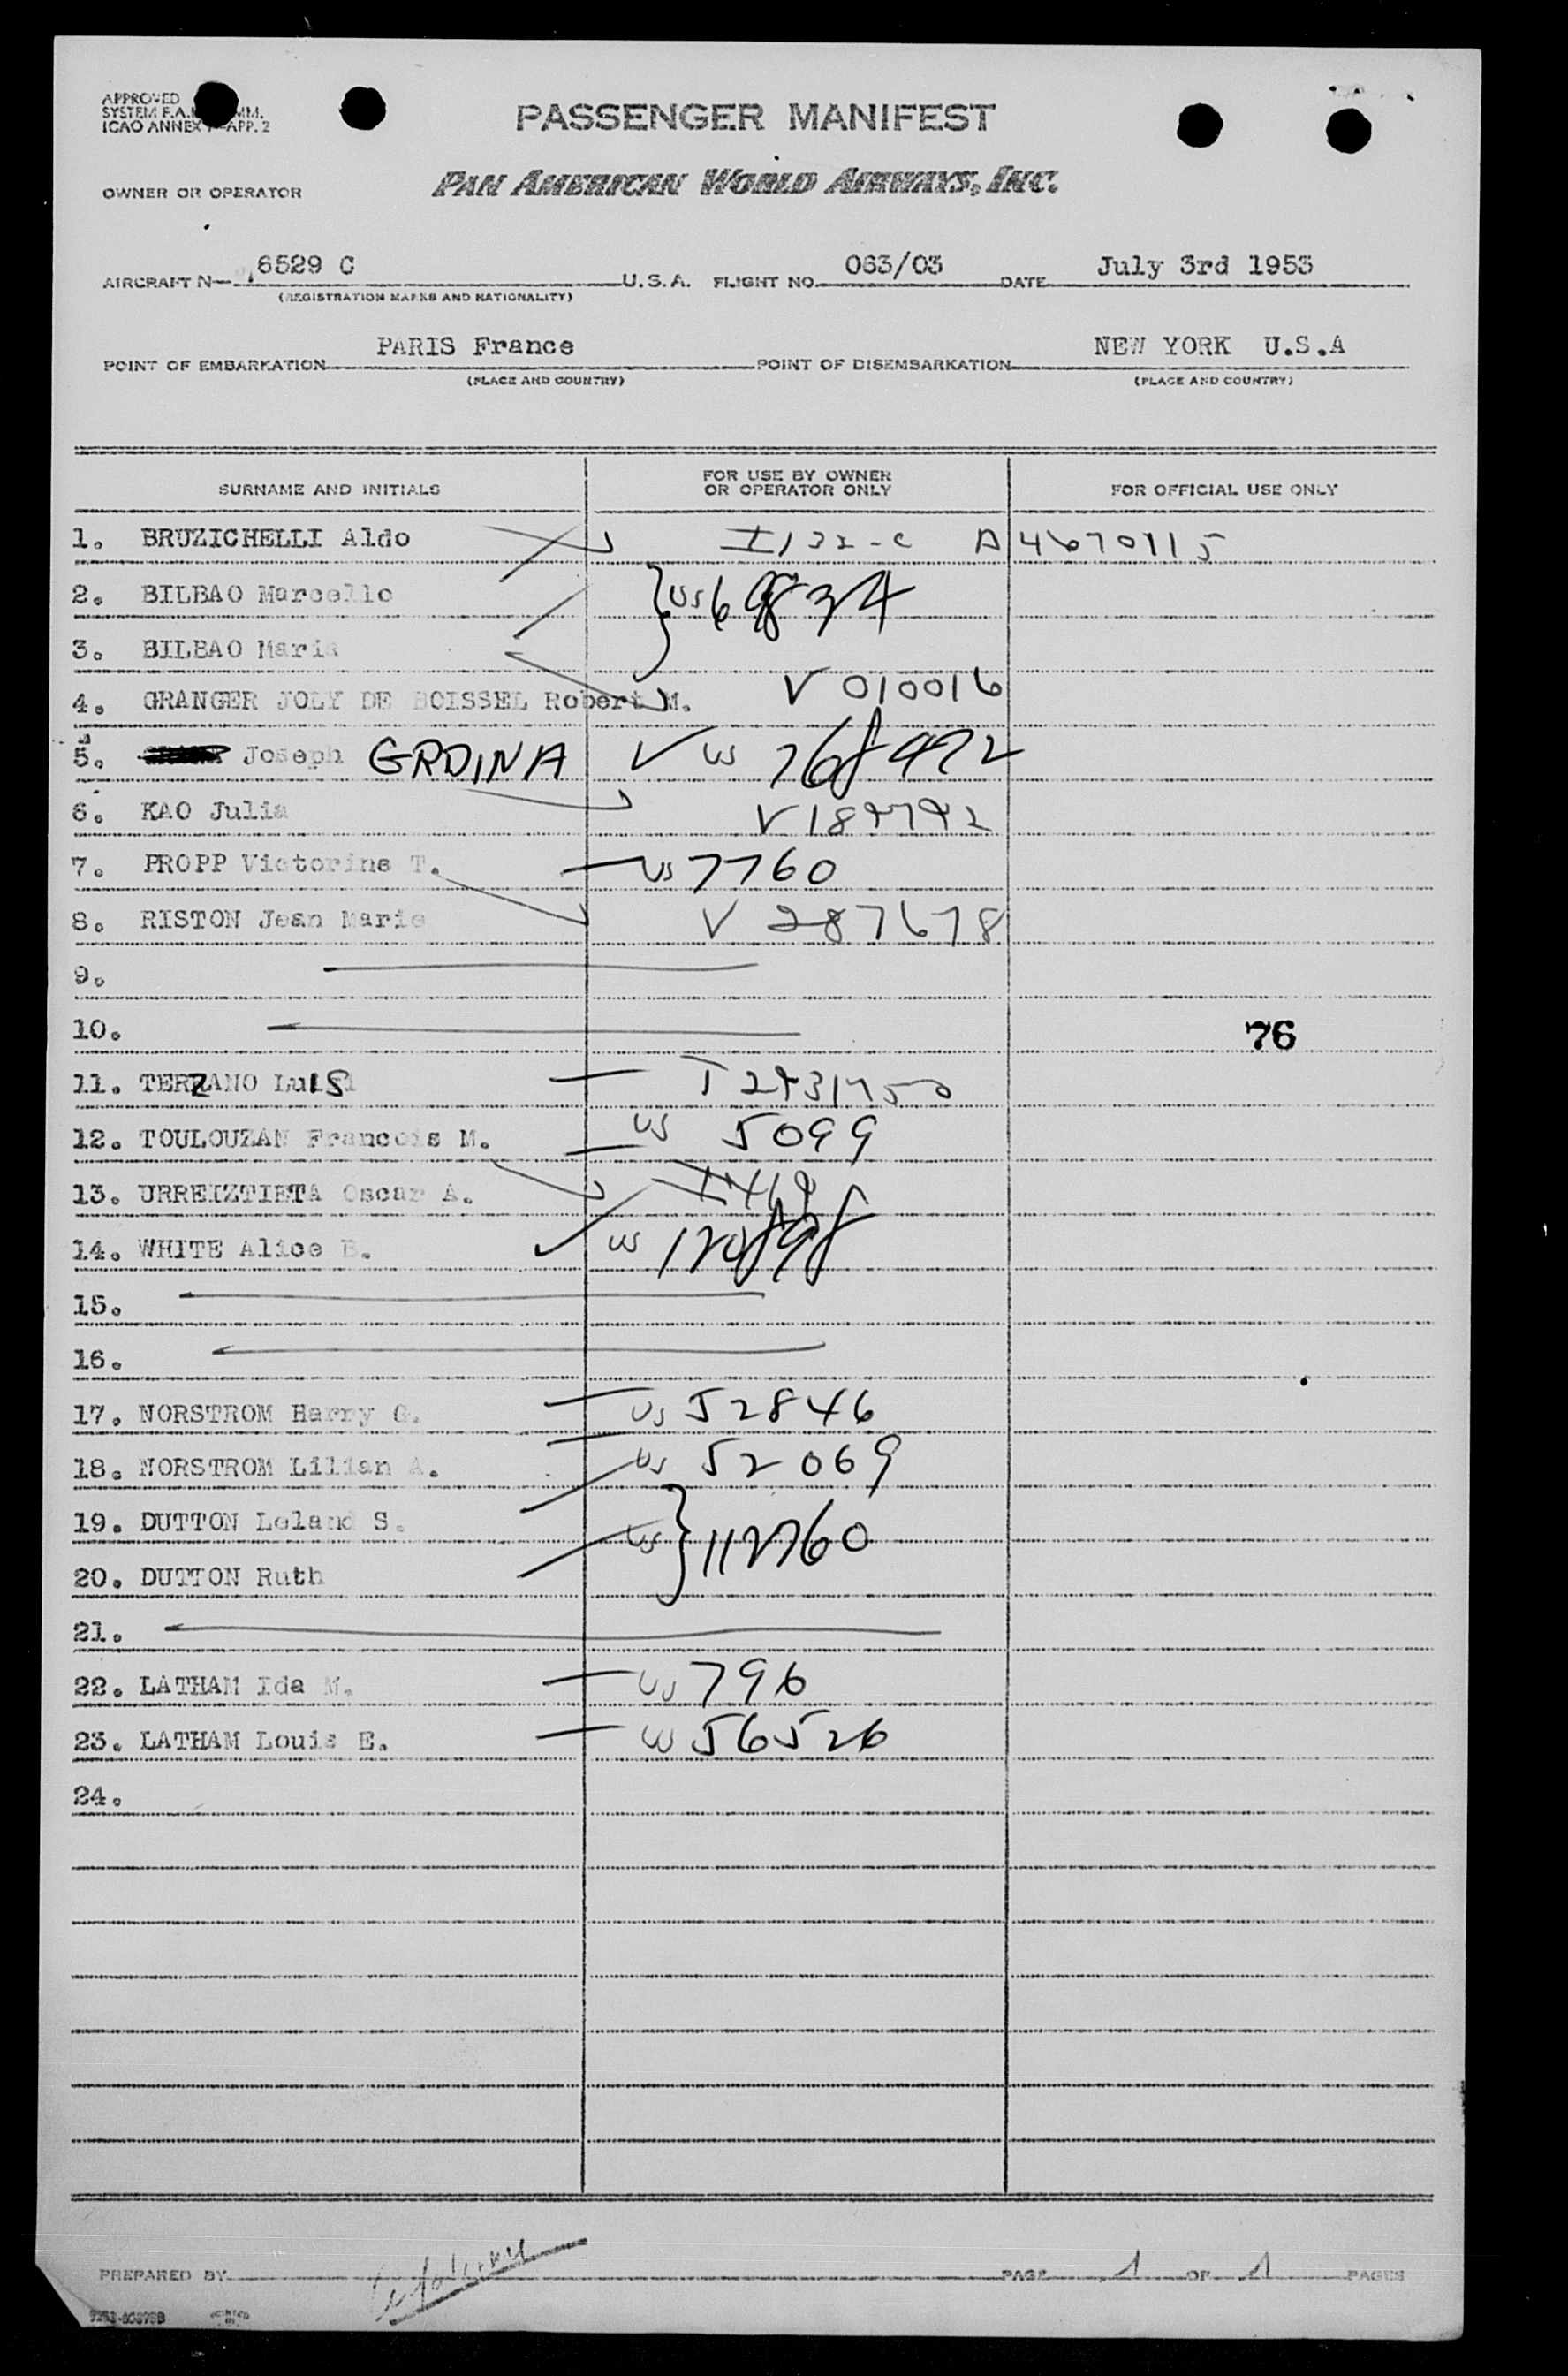 APPROVED
SYSTEM F.A.
ICAO ANNEX APP. 2
PASSENGER MANIFEST
OWNER OR OPERATOR PAN AMERICAN WORLD AIRWAYS, INC.
AIRCRAFT N 6529 C U.S.A. FLIGHT NO. 063/03 DATE July 3rd 1953
(REGISTRATION MARKS AND NATIONALITY)
POINT OF EMBARKATION PARIS France POINT OF DISEMBARKATION NEW YORK U.S.A
(PLACE AND COUNTRY) (PLACE AND COUNTRY)
SURNAME AND INITIALS FOR USE BY OWNER OR OPERATOR ONLY FOR OFFICIAL USE ONLY
1. BRUZICHELLI Aldo I132-C A4670115
2. BILBAO Marcello US
3. BILBAO Maria
4. GRANGER JOLY DE BOISSEL Robert M. V 010016
5. Joseph GRDINA US
6. KAO Julia
7. PROPP Victorine T. US 7760
8. RISTON Jean Marie V 287678
9.
10. 76
11. TERZANO LUIS
12. TOULOUZAN Francois M. US 5099
13. URREIZTIETA Oscar A.
14. WHITE Alice B. US
15.
16.
17. NORSTROM Harry G. US 52846
18. NORSTROM Lilian A. US 52069
19. DUTTON Leland S. US
20. DUTTON Ruth
21.
22. LATHAM Ida M. US 796
23. LATHAM Louis E. US 56526
24.
PREPARED BY PAGE 1 OF 1 PAGES
PRINTED